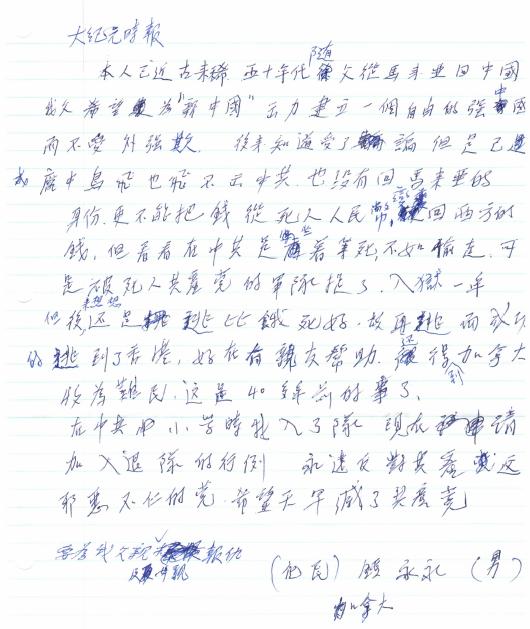 大紀元時報
本人已近古来稀 五十年代随父從馬来亚回中國
我父希望為"新中國"出力建立一個自由的强中國
而不受外强欺. 後来知道受了論 但是已進
成籠中鳥飛也飛不出中共. 也没有回馬来亚的
身份. 更不能把錢從死人人民幣換回西方的
錢, 但看看在中共是 着等死, 不如偷走. 可
是被死人共產党的軍隊捉了. 入獄一年
但後来想想还是逃比餓死好. 故再逃 而成功
的逃到了香港, 好在有親友幫助. 还得到加拿大
收為難民. 这是40 年前的事了.
在中共 小学時我入了隊 現在申請
加入退隊的行例 永遠反對共產 这
邪惡不仁的党. 希望天早滅了共產党
要為我父親 報仇
(化民) 顾永永 (男)
加拿大